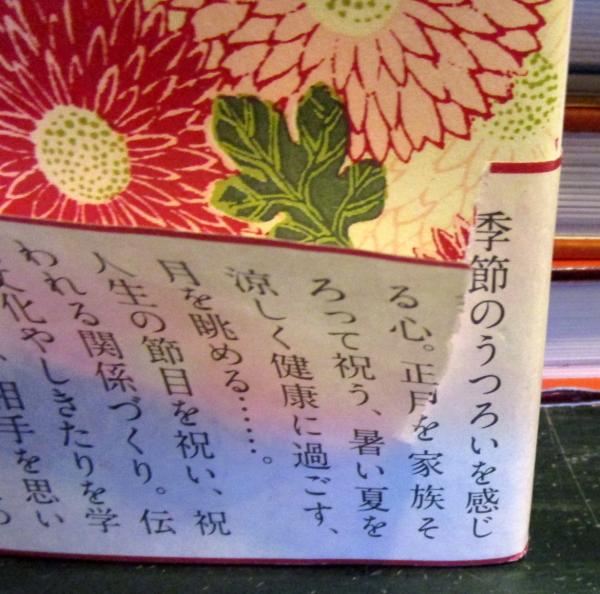 季節のうつろいを感じ
る心。正月を家族そ
ろって祝う、暑い夏を
涼しく健康に過ごす、
月を眺める……。
人生の節目を祝い、祝
われる関係づくり。伝
文化やしきたりを学
相手を思い